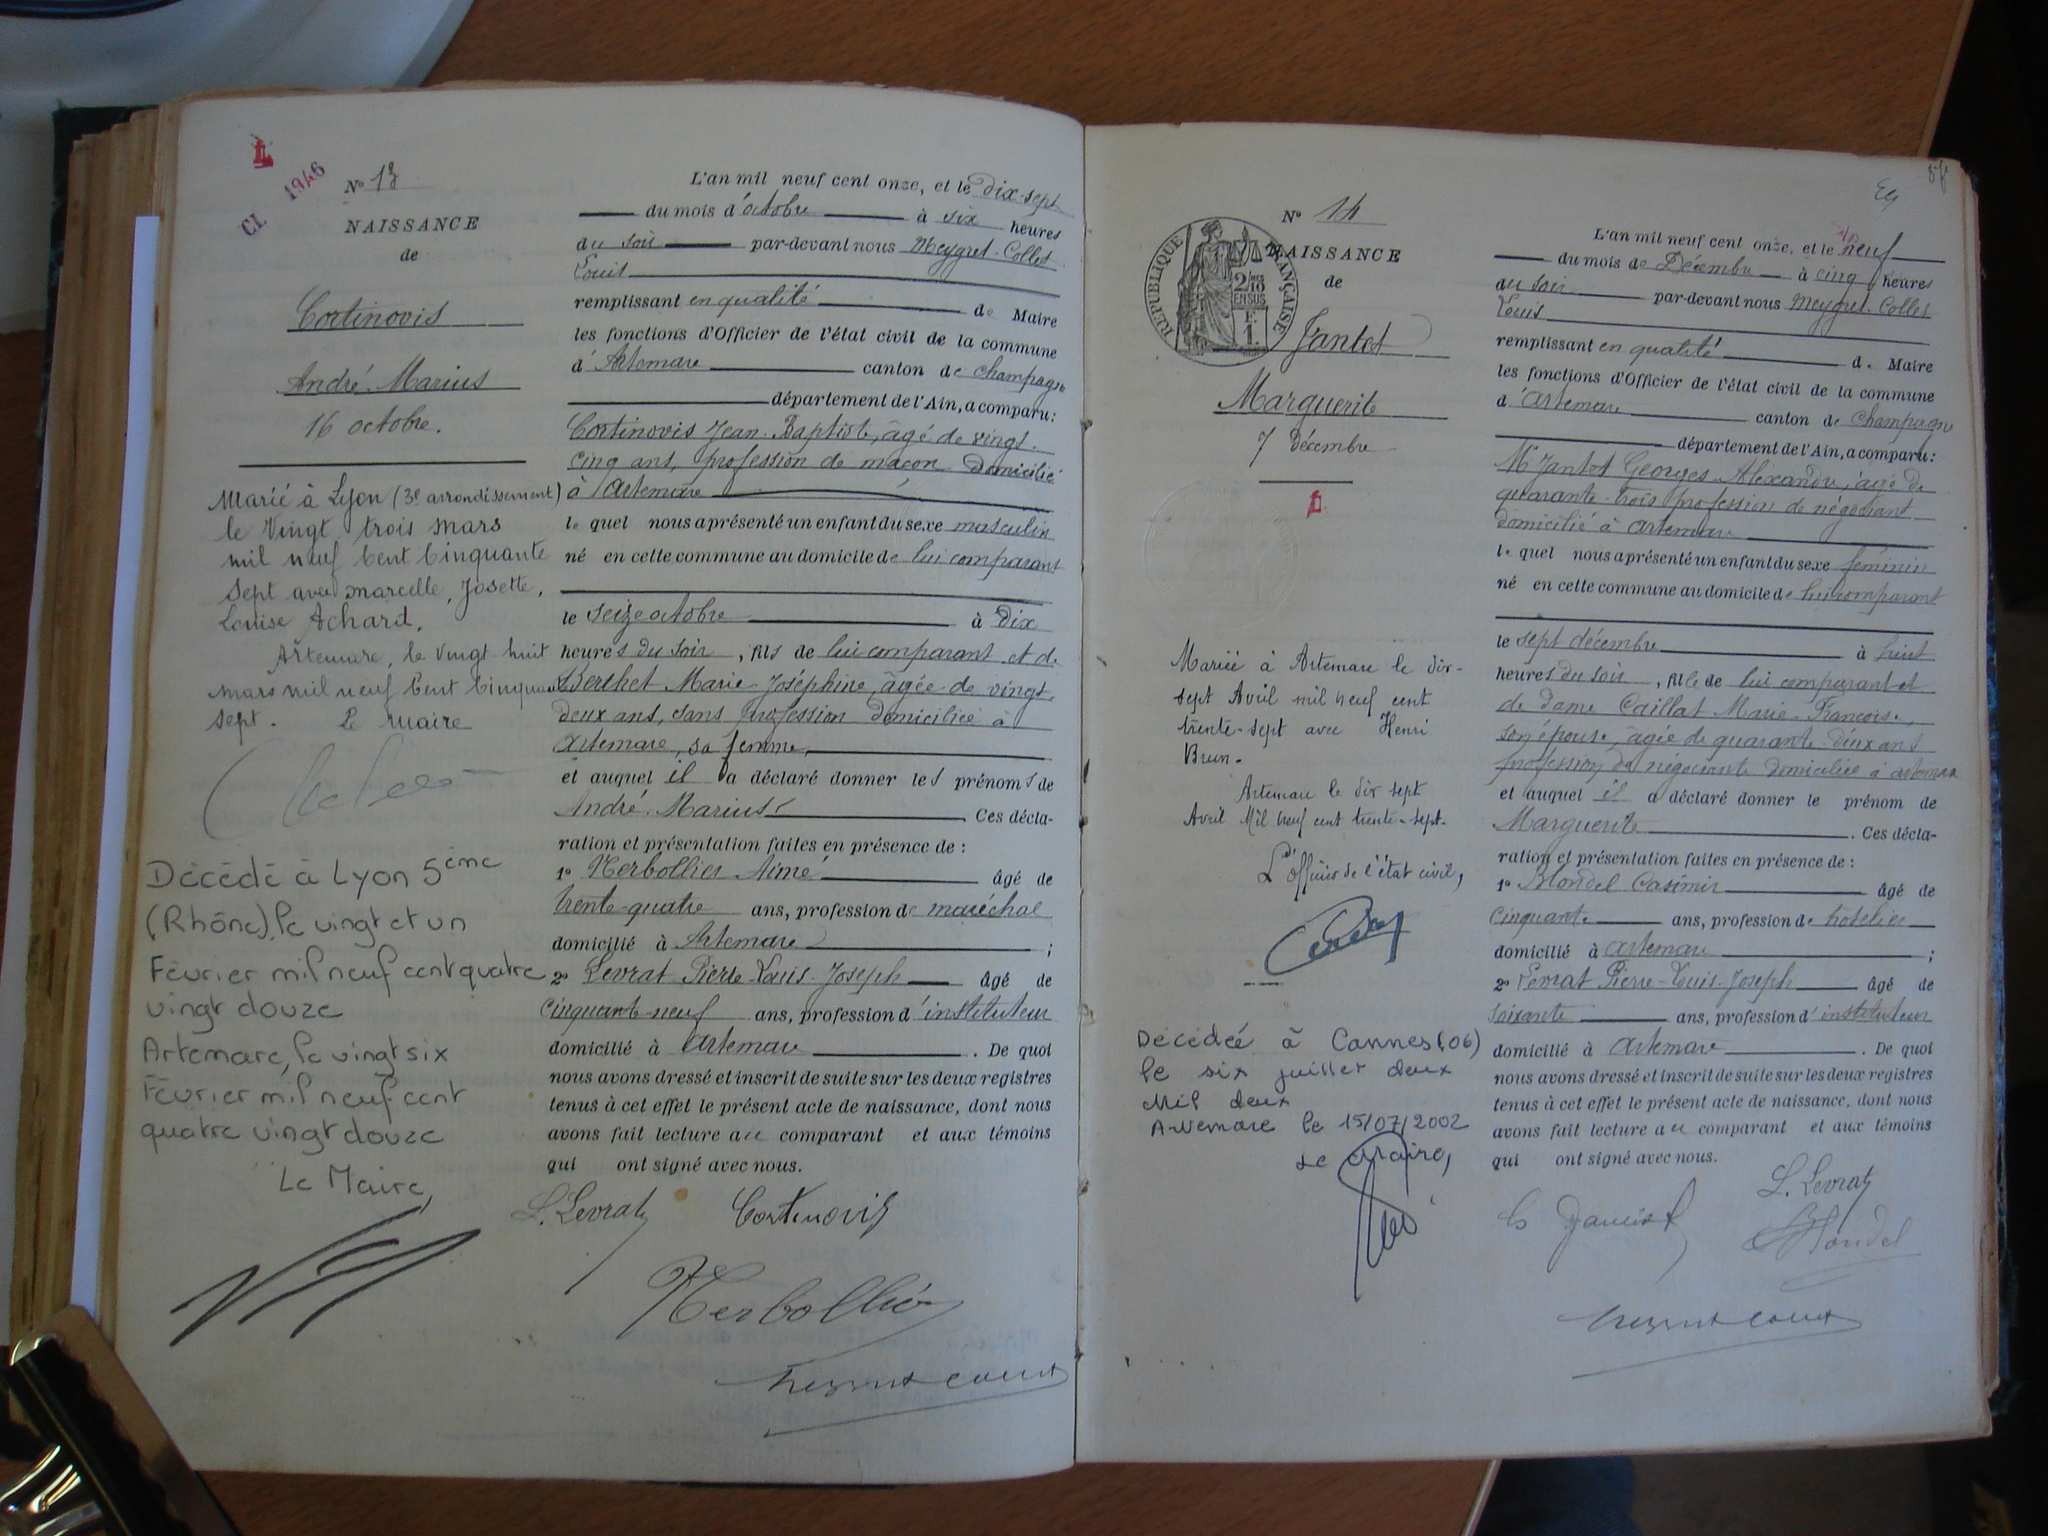 CL 1946
Nº 13
NAISSANCE
de
Cortinovis
André Marius
16 octobre.
Marié à Lyon (3e arrondissement)
le Vingt trois mars
mil neuf Cent Cinquante
Sept avec Marcelle, Josette,
Louise Achard.
Artemare, le Vingt huit
mars mil neuf Cent Cinquante
sept. Le Maire
Décédé à Lyon 5ème
(Rhône), le vingt et un
Février mil neuf cent quatre
vingt douze
Artemare, le vingt six
Février mil neuf cent
quatre vingt douze
Le Maire,
L'an mil neuf cent onze, et le Dix-sept
du mois d'octobre à six heures
du soir par-devant nous Meygret-Collet
Louis
remplissant en qualité de Maire
les fonctions d'Officier de l'état civil de la commune
d'Artemare canton de Champagne
département de l'Ain, a comparu:
Cortinovis Jean-Baptiste, âgé de vingt-
cinq ans, profession de maçon Domicilié
à Artemare
le quel nous a présenté un enfant du sexe masculin
né en cette commune au domicile de lui comparant
le seize octobre à Dix
heures du soir, fils de lui comparant et de
Berthet Marie-Joséphine, âgée de vingt-
deux ans, sans profession domiciliée à
Artemare, sa femme,
et auquel il a déclaré donner les prénoms de
André Marius. Ces décla-
ration et présentation faites en présence de :
1º Nerbollier Aimé âgé de
trente-quatre ans, profession de maréchal
domicilié à Artemare ;
2º Levrat Pierre-Louis-Joseph âgé de
cinquante-neuf ans, profession d'instituteur
domicilié à Artemare. De quoi
nous avons dressé et inscrit de suite sur les deux registres
tenus à cet effet le présent acte de naissance, dont nous
avons fait lecture au comparant et aux témoins
qui ont signé avec nous.
L. Levrat Cortinovis
Nerbollier
Meygret Collet
RÉPUBLIQUE FRANÇAISE
2/10
EN SUS
F.
1.
Nº 14
NAISSANCE
de
Jantet
Marguerite
7 Décembre
Mariée à Artemare le dix-
sept Avril mil neuf cent
trente-sept avec Henri
Brun.
Artemare le dix sept
Avril Mil neuf cent trente-sept.
L'officier de l'état civil,
Décédée à Cannes (06)
le six juillet deux
mil deux
Artemare le 15/07/2002
Le Maire,
L'an mil neuf cent onze, et le neuf
du mois de Décembre à cinq heures
du soir par-devant nous Meygret-Collet
Louis
remplissant en qualité de Maire
les fonctions d'Officier de l'état civil de la commune
d'Artemare canton de Champagne
département de l'Ain, a comparu:
Mr Jantet Georges-Alexandre, âgé de
quarante-trois profession de négociant
domicilié à Artemare
le quel nous a présenté un enfant du sexe féminin
né en cette commune au domicile de lui comparant
le sept décembre à huit
heures du soir, fille de lui comparant et
de dame Caillat Marie-Françoise,
son épouse, âgée de quarante-deux ans
profession de négociante domiciliée à Artemare
et auquel il a déclaré donner le prénom de
Marguerite. Ces décla-
ration et présentation faites en présence de :
1º Blondel Casimir âgé de
cinquante ans, profession de hotelier
domicilié à Artemare ;
2º Levrat Pierre-Louis-Joseph âgé de
soixante ans, profession d'instituteur
domicilié à Artemare. De quoi
nous avons dressé et inscrit de suite sur les deux registres
tenus à cet effet le présent acte de naissance, dont nous
avons fait lecture au comparant et aux témoins
qui ont signé avec nous.
L. Levrat
G Jantet Blondel
Meygret Collet